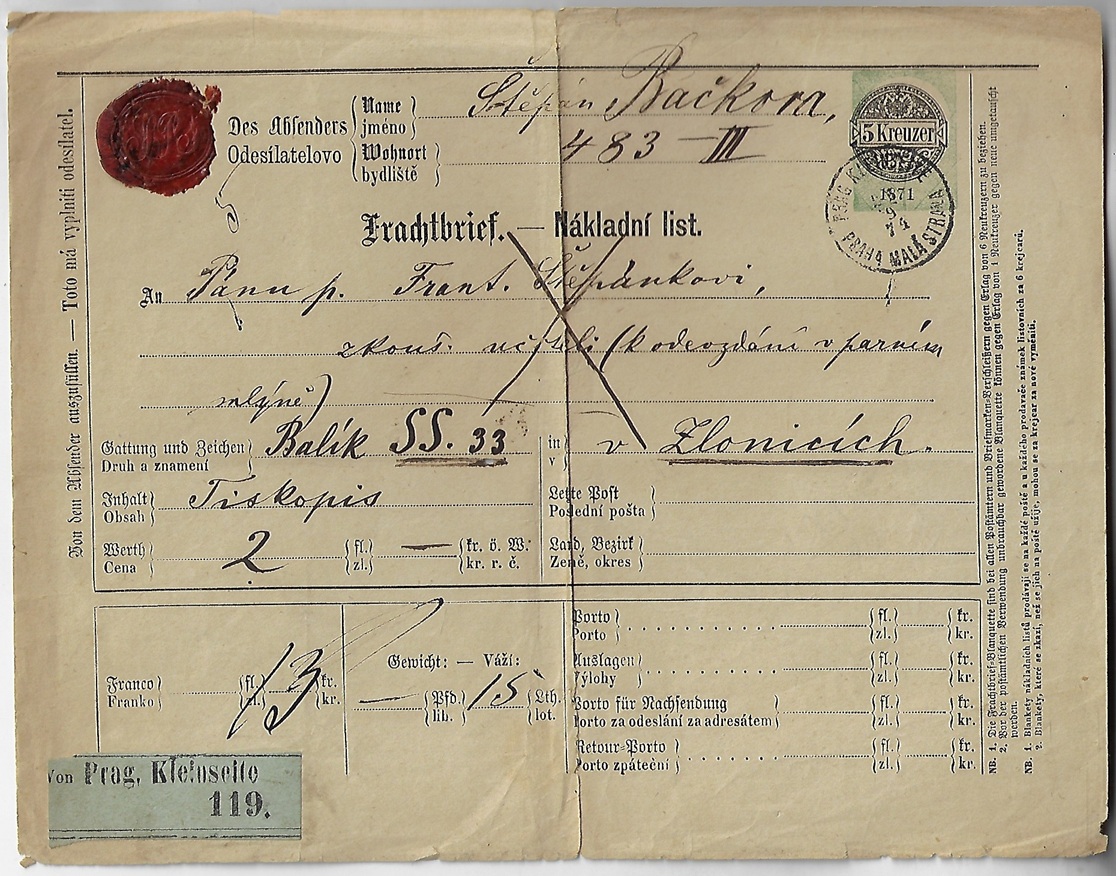 Von dem Absender auszufüllen. — Toto má vyplniti odesílatel.
Des Absenders Odesílatelovo
Name jméno Štěpán Bačkora,
Wohnort bydliště 483 — III
5 Kreuzer
1871
PRAG KLEINSEITE
9
74
PRAHA MALÁ STRANA
Frachtbrief. — Nákladní list.
An Pánu p. Frant. Štěpánkovi,
zkouš. učiteli (k odevzdání v parním
mlýně)
Gattung und Zeichen Druh a znamení Balík SS. 33
in v v Zlonicích.
Inhalt Obsah Tiskopis
Lette Post Poslední pošta
Werth Cena 2 fl. zl. — kr. ö. W. kr. r. č.
Land, Bezirk Země, okres
Franco Franko fl. zl. 13 kr. kr.
Gewicht: — Váží:
— Pfd. lib. 15 Lth. lot.
Porto Porto fl. zl. kr. kr.
Auslagen Výlohy fl. zl. kr. kr.
Porto für Nachsendung Porto za odeslání za adresátem fl. zl. kr. kr.
Retour-Porto Porto zpáteční fl. zl. kr. kr.
Von Prag, Kleinseite
119.
NB. 1. Die Frachtbrief-Blanquette sind bei allen Postämtern und Briefmarken-Verschleißern gegen Erlag von 6 Neukreuzern zu beziehen.
2. Vor der postämtlichen Verwendung unbrauchbar gewordene Blanquette können gegen Erlag von 1 Neukreuzer gegen neue umgetauscht
werden.
NB. 1. Blankety nákladních listů prodávají se na každé poště a u každého prodavače známek listovních za 6 krejcarů.
2. Blankety, které se zkazí, než se jich na poště užije, mohou se za krejcar za nové vyměniti.